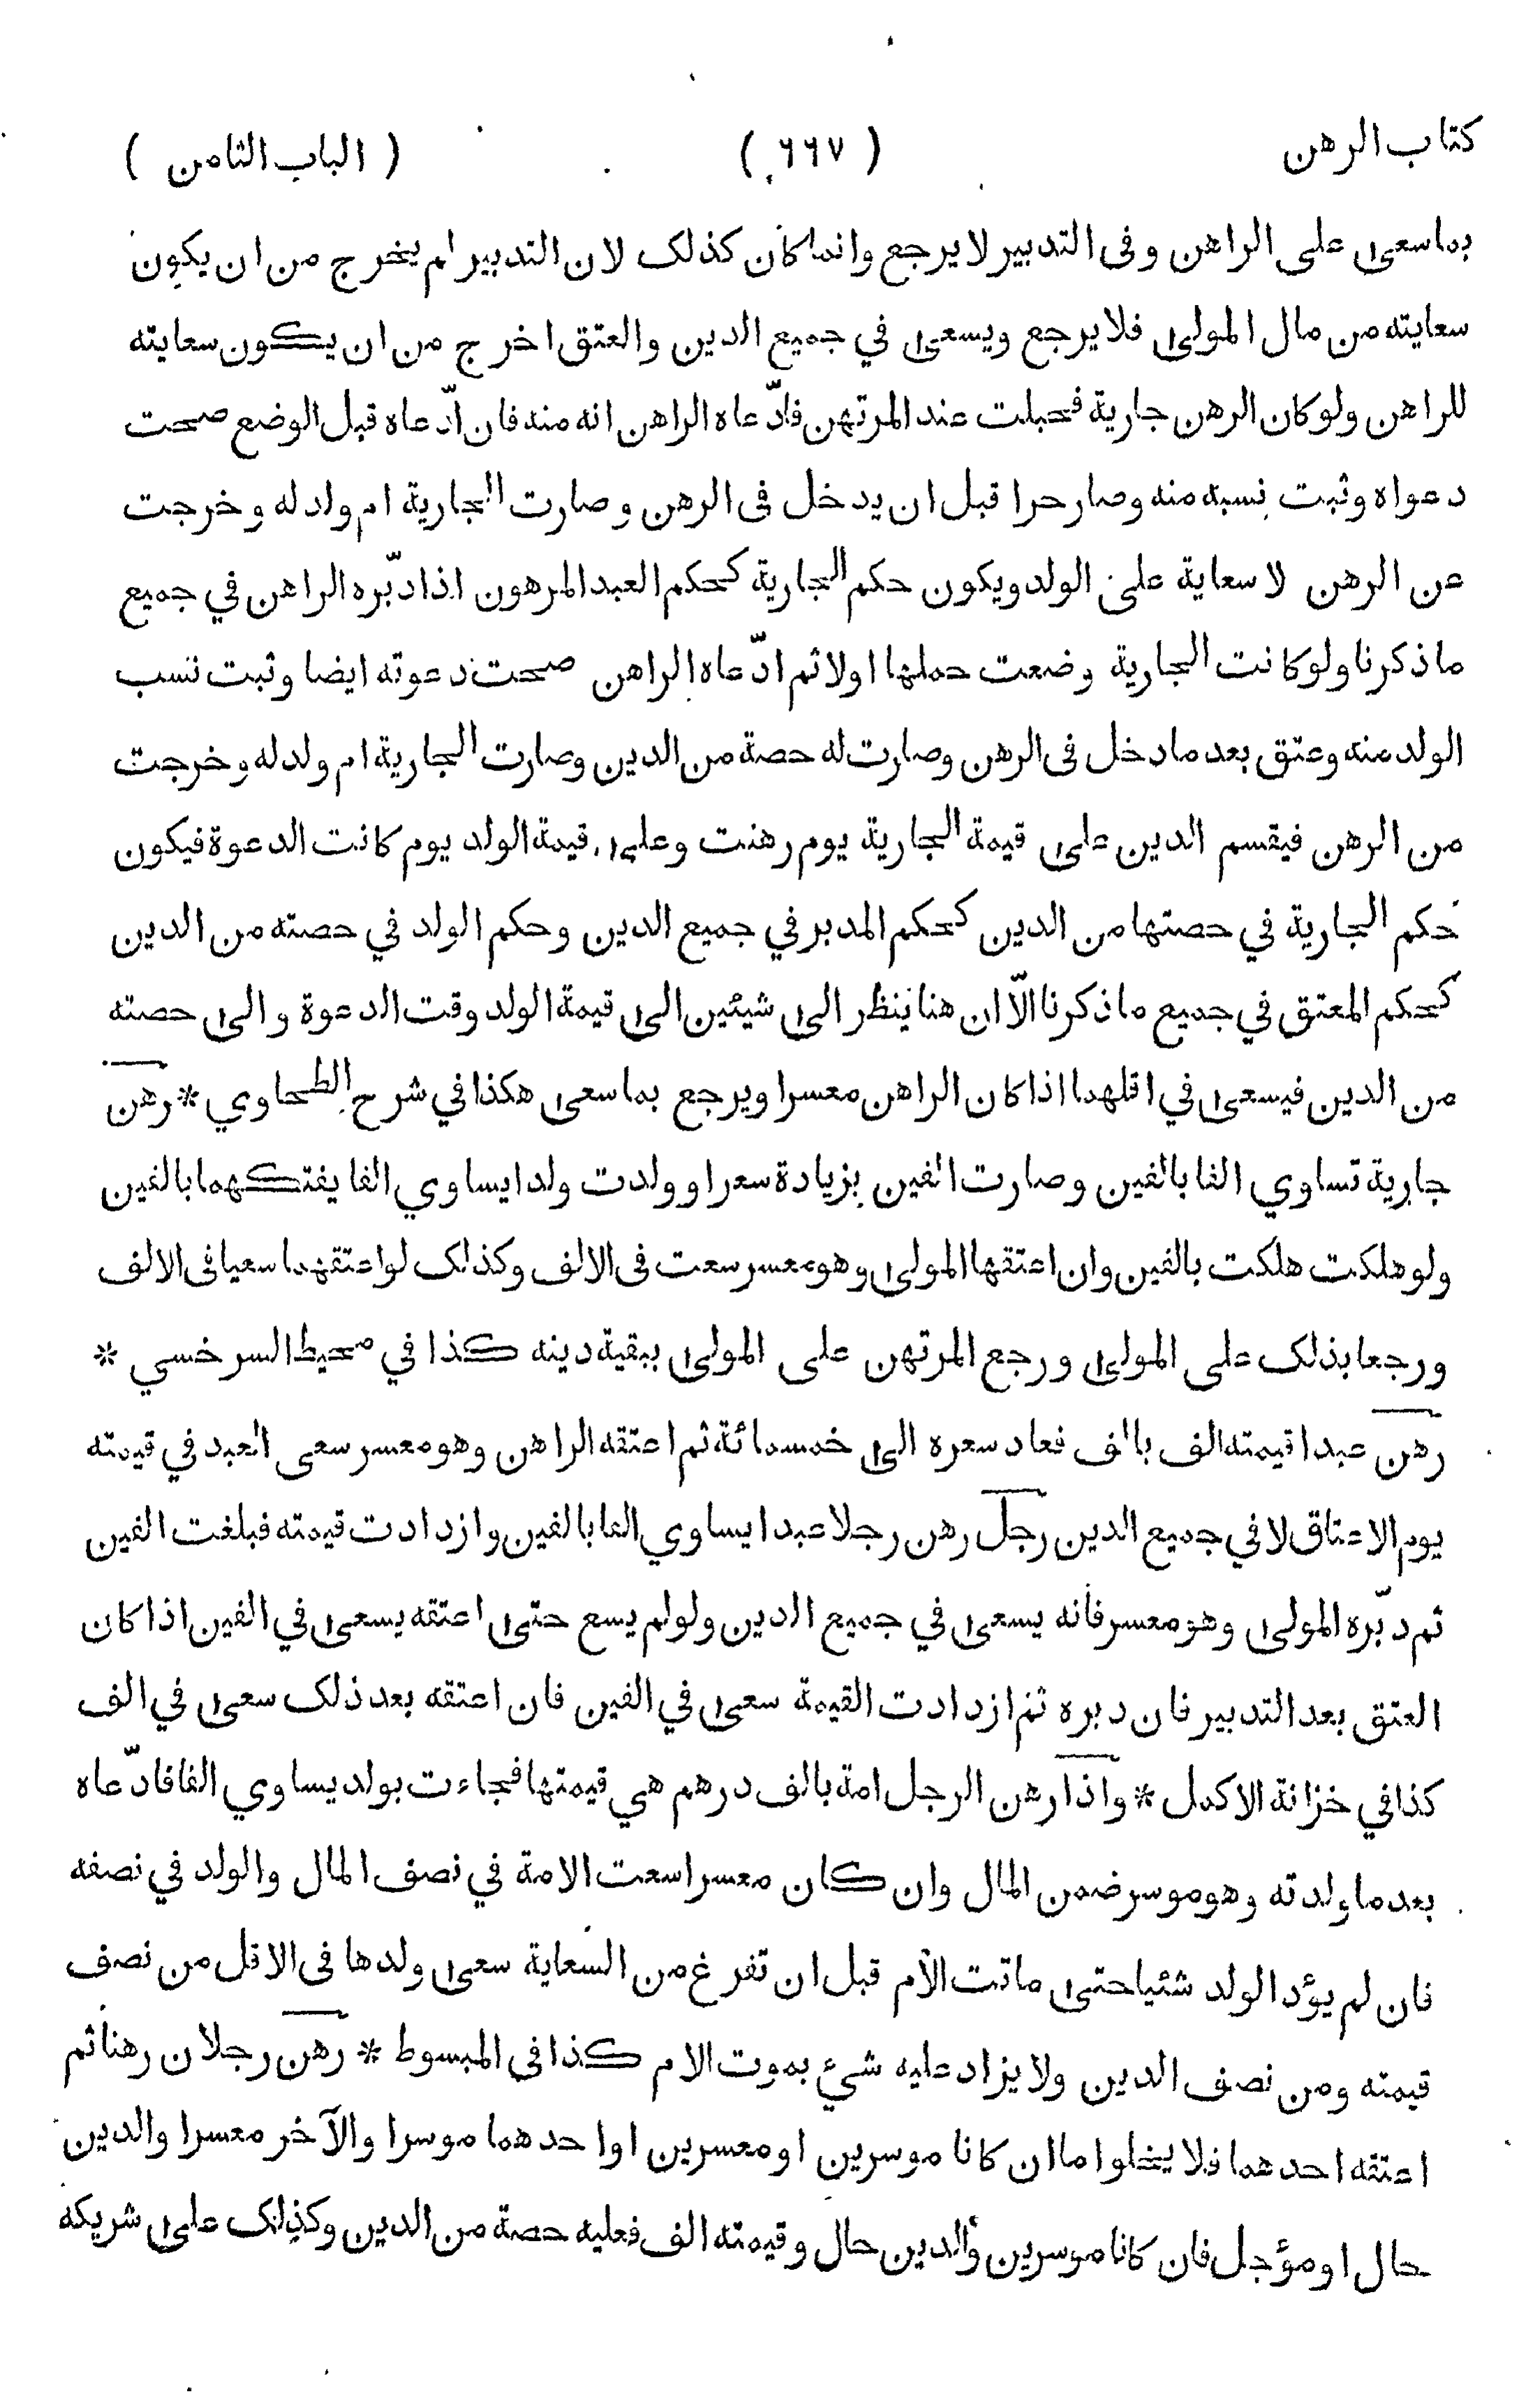 كتاب الرهن ( ٦٦٧ ) ( الباب الثامن )
بما سعى على الراهن وفى التدبير لا يرجع وانما كان كذلك لان التدبير لم يخرج من ان يكون
سعايته من مال المولى فلا يرجع ويسعى في جميع الدين والعتق اخرج من ان يكون سعايته
للراهن ولوكان الرهن جارية فحبلت عند المرتهن فادّعاه الراهن انه منه فان ادّعاه قبل الوضع صحت
دعواه وثبت نسبه منه وصار حرا قبل ان يدخل فى الرهن وصارت الجارية ام ولد له وخرجت
عن الرهن لا سعاية على الولد ويكون حكم الجارية كحكم العبد المرهون اذا دبّره الراهن في جميع
ما ذكرنا ولو كانت الجارية وضعت حملها اولا ثم ادّعاه الراهن صحت دعوته ايضا وثبت نسب
الولد منه وعتق بعد ما دخل فى الرهن وصارت له حصة من الدين وصارت الجارية ام ولد له وخرجت
من الرهن فيقسم الدين على قيمة الجارية يوم رهنت وعلى قيمة الولد يوم كانت الدعوة فيكون
حكم الجارية في حصتها من الدين كحكم المدبر في جميع الدين وحكم الولد في حصته من الدين
كحكم المعتق في جميع ما ذكرنا الّا ان هنا ينظر الى شيئين الى قيمة الولد وقت الدعوة والى حصته
من الدين فيسعى في اقلهما اذا كان الراهن معسرا ويرجع بما سعى هكذا في شرح الطحاوي * رهن
جارية تساوي الفا بالفين وصارت الفين بزيادة سعر او ولدت ولدا يساوي الفا يفتكهما بالفين
ولو هلكت هلكت بالفين وان اعتقها المولى وهو معسر سعت فى الالف وكذلك لو اعتقهما سعيا فى الالف
ورجعا بذلك على المولى ورجع المرتهن على المولى ببقية دينه كذا في محيط السرخسي *
رهن عبدا قيمته الف بالف فعاد سعره الى خمسمائة ثم اعتقه الراهن وهو معسر سعى العبد في قيمته
يوم الاعتاق لا في جميع الدين رجل رهن رجلا عبدا يساوي الفا بالفين وازدادت قيمته فبلغت الفين
ثم دبّره المولى وهو معسر فأنه يسعى في جميع الدين ولو لم يسع حتى اعتقه يسعى في الفين اذا كان
العتق بعد التدبير فان دبره ثم ازدادت القيمة سعى في الفين فان اعتقه بعد ذلك سعى في الف
كذا في خزانة الاكمل * واذا رهن الرجل امة بالف درهم هي قيمتها فجاءت بولد يساوي الفا فادّعاه
بعد ما ولدته وهو موسر ضمن المال وان كان معسرا سعت الامة في نصف المال والولد في نصفه
فان لم يؤد الولد شئيا حتى ماتت الام قبل ان تفرغ من السعاية سعى ولدها فى الاقل من نصف
قيمته ومن نصف الدين ولا يزاد عليه شيء بموت الام كذا فى المبسوط * رهن رجلان رهنا ثم
اعتقه احدهما فلا يخلوا ما ان كانا موسرين او معسرين او احدهما موسرا والآخر معسرا والدين
حال او مؤجل فان كانا موسرين والدين حال وقيمته الف فعليه حصة من الدين وكذلك على شريكه